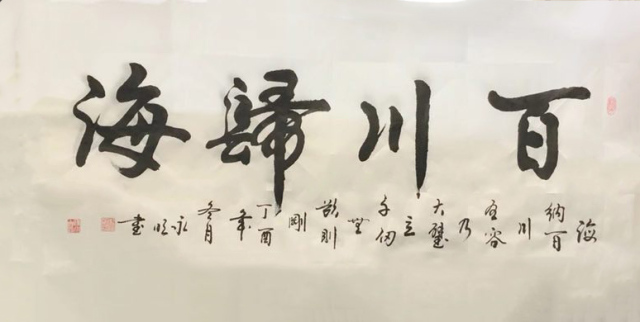 百川歸海
海納百川有容乃大壁立千仞無欲則剛丁酉年冬月永書